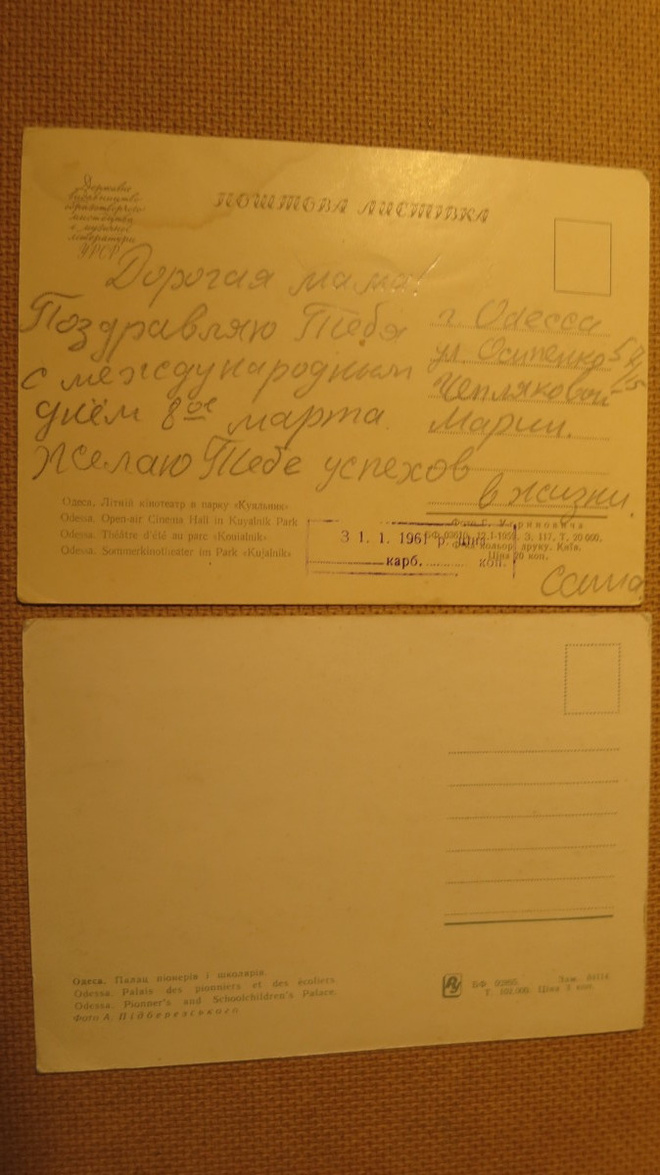 Державне
видавництво
образотворчого
мистецтва
і музичної
літератури
УРСР
ПОШТОВА ЛИСТІВКА
Дорогая мама!
Поздравляю Тебя
с международным
днём 8ое марта.
Желаю Тебе успехов
в жизни.
г. Одесса
ул. Осипенко
Чепляковой
Марии.
Одеса. Літній кінотеатр в парку «Куяльник»
Odessa. Open-air Cinema Hall in Kuyalnik Park
Odessa. Théâtre d'été au parc «Kouialnik»
Odessa. Sommerkinotheater im Park «Kujalnik»
З 1. 1. 1961 р. ціна
карб. коп.
Фото Г. Угриновича
Т. 20 000.
друку. Київ.
Ціна 20 коп.
Одеса. Палац піонерів і школярів.
Odessa. Palais des pionniers et des écoliers.
Odessa. Pionner's and Schoolchildren's Palace.
Фото А. Підберезського